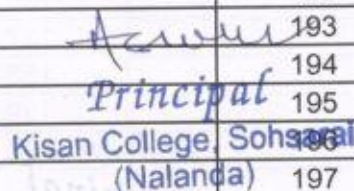 193
194
Principal 195
Kisan College, Sohsarai 196
(Nalanda) 197